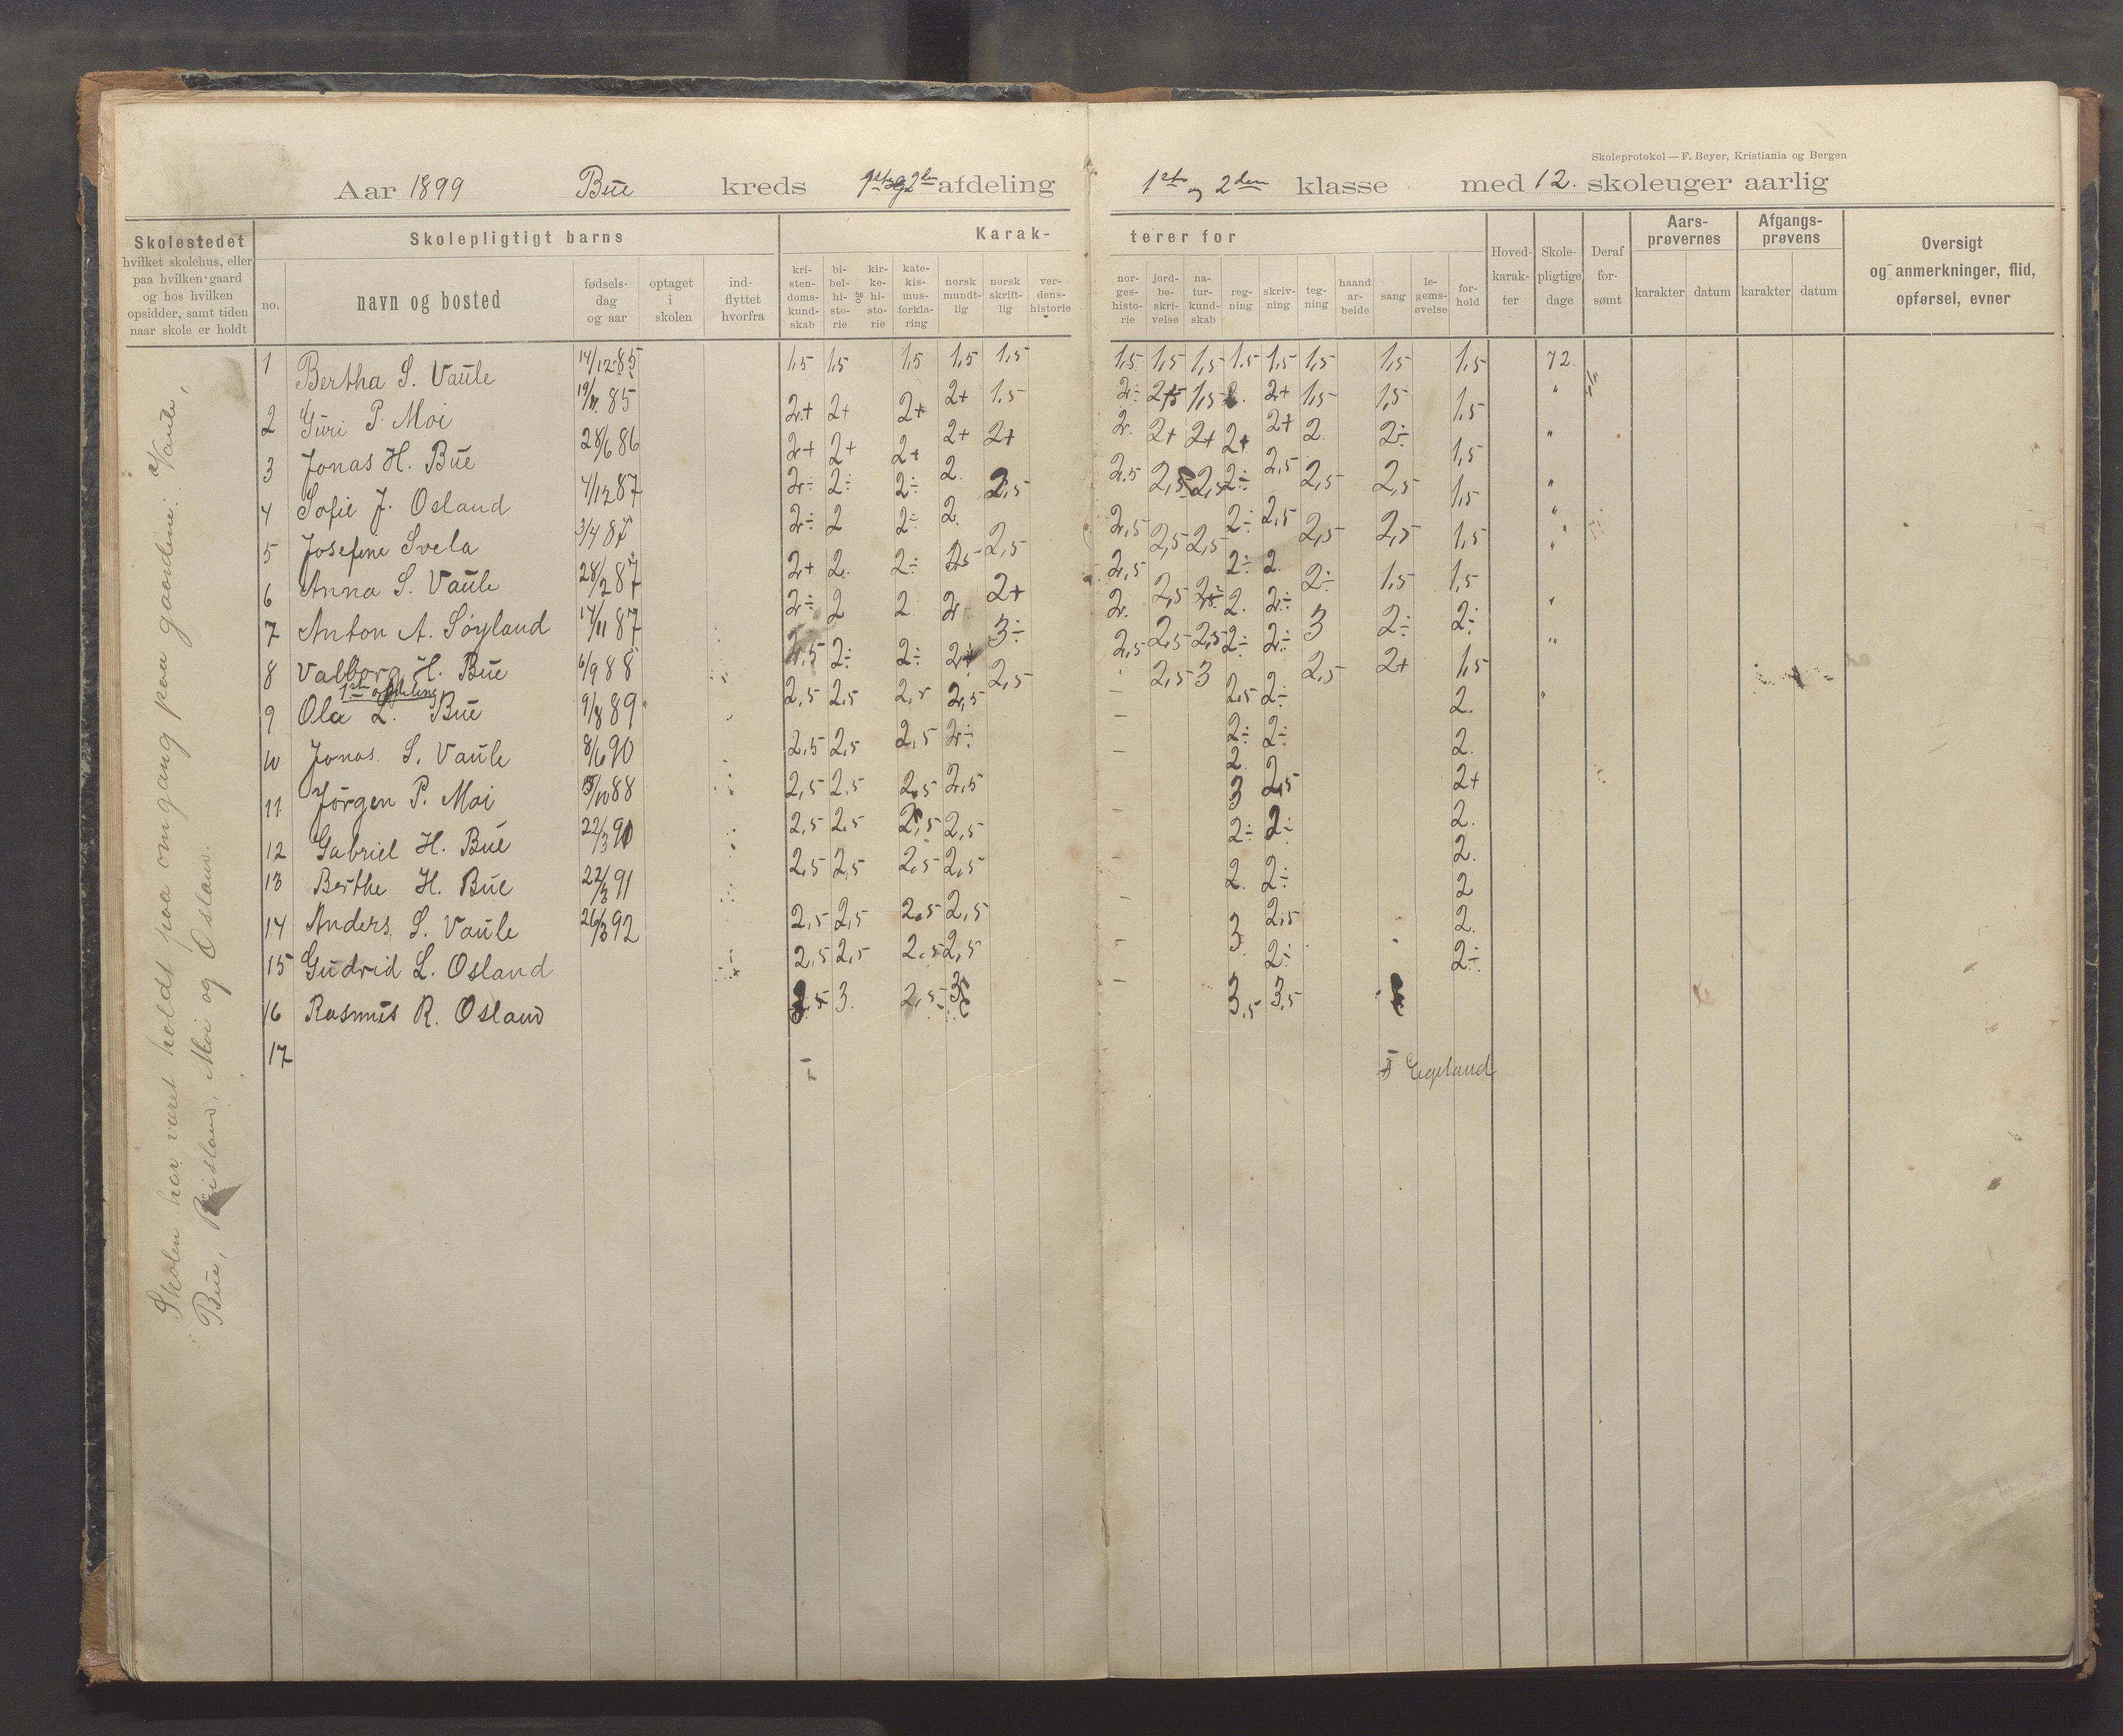 Skoleprotokol — F. Beyer, Kristiania og Bergen
Aar 1899 Bue kreds afdeling 1ste og 2den klasse med 12. skoleuger aarlig
Skolestedet
hvilket skolehus, eller
paa hvilken gaard
og hos hvilken
opsidder, samt tiden
naar skole er holdt
Skolepligtigt barns
no.
navn og bosted
fødsels-
dag
og aar
optaget
i
skolen
ind-
flyttet
hvorfra
Karak-
kri-
sten-
doms-
kund-
skab
bi-
bel-
hi-
sto-
rie
og
kir-
ke-
hi-
sto-
rie
kate-
kis-
mus-
forkla-
ring
norsk
mundt-
lig
norsk
skrift-
lig
ver-
dens-
historie
terer for
nor-
ges-
histo-
rie
jord-
be-
skri-
velse
na-
tur-
kund-
skab
reg-
ning
skriv-
ning
teg-
ning
haand
ar-
beide
sang
le-
gems-
øvelse
for-
hold
Hoved-
karak-
ter
Skole-
pligtige
dage
Deraf
for-
sømt
Aars-
prøvernes
karakter datum
Afgangs-
prøvens
karakter datum
Oversigt
og anmerkninger, flid,
opførsel, evner
Skolen har været holdt paa omgang paa gaardene: Vaule,
Bue, Moi og Osland.
1 Bertha S. Vaule 14/12 85 1,5 1,5 1,5 1,5 1,5 1,5 1,5 1,5 1,5 1,5 1,5 1,5 1,5 72.
2 Guri P. Moi 85 2+ 2+ 2+ 2+ 1,5 2÷ 1,5 2+ 1,5 1,5 1,5 "
3 Jonas H. Bue 28/6 86 2+ 2+ 2+ 2+ 2+ 2. 2+ 2+ 2+ 2+ 2. 2÷ 1,5 "
4 Sofie J. Osland 87 2÷ 2÷ 2÷ 2. 2,5 2,5 2,5 2,5 2÷ 2,5 2,5 2,5 1,5 "
5 Josefine Svela 3/4 87 2÷ 2 2÷ 2. 2,5 2,5 2,5 2,5 2÷ 2,5 2,5 2,5 1,5 "
6 Anna S. Vaule 28/2 87 2+ 2. 2÷ 2+ 2,5 2,5 2÷ 2. 2÷ 1,5 1,5 "
7 Anton A. Søyland 87 2÷ 2 2. 2 3÷ 2. 2,5 2,5 2. 2÷ 3 2÷ 2÷ "
8 Valborg H. Bue 6/9 88 2,5 2÷ 2÷ 2,5 2,5 2,5 3 2÷ 2÷ 2,5 2+ 1,5 "
1ste afdeling
9 Ola L. Bue 9/8 89 2,5 2,5 2,5 2,5 2,5 2÷ 2.
10 Jonas S. Vaule 8/6 90 2,5 2,5 2,5 2÷ 2÷ 2÷ 2.
11 Jörgen P. Moi 88 2,5 2,5 2,5 2,5 2. 2,5 2+
12 Gabriel H. Bue 22/3 2,5 2,5 2,5 2,5 3 2÷ 2.
13 Berthe H. Bue 22/3 91 2,5 2,5 2,5 2,5 2÷ 2÷ 2.
14 Anders S. Vaule 26/3 92 2,5 2,5 2,5 2,5 2. 2,5 2
15 Gudrid L. Osland 2,5 2,5 2,5 2,5 3 2÷ 2.
16 Rasmus R. Osland 3. 2,5 3,5 3,5 2÷
17
Eegeland